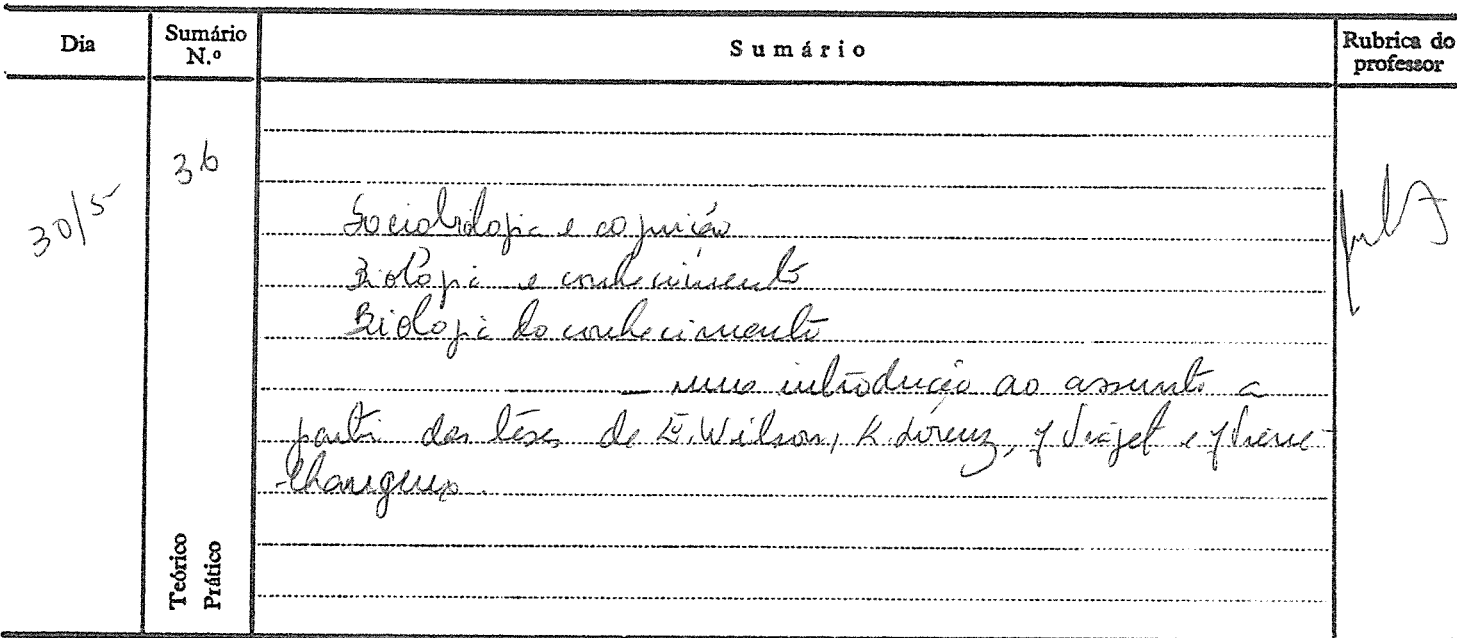 Dia
Sumário N.º
Sumário
Rubrica do professor
30/5
36
Sociobiologia e cognição
Biologia e conhecimento
Biologia do conhecimento
— uma introdução ao assunto a
partir das teses de E. Wilson, K. Lorenz, J Piaget e J Pierre-
Changeux.
Teórico
Prático